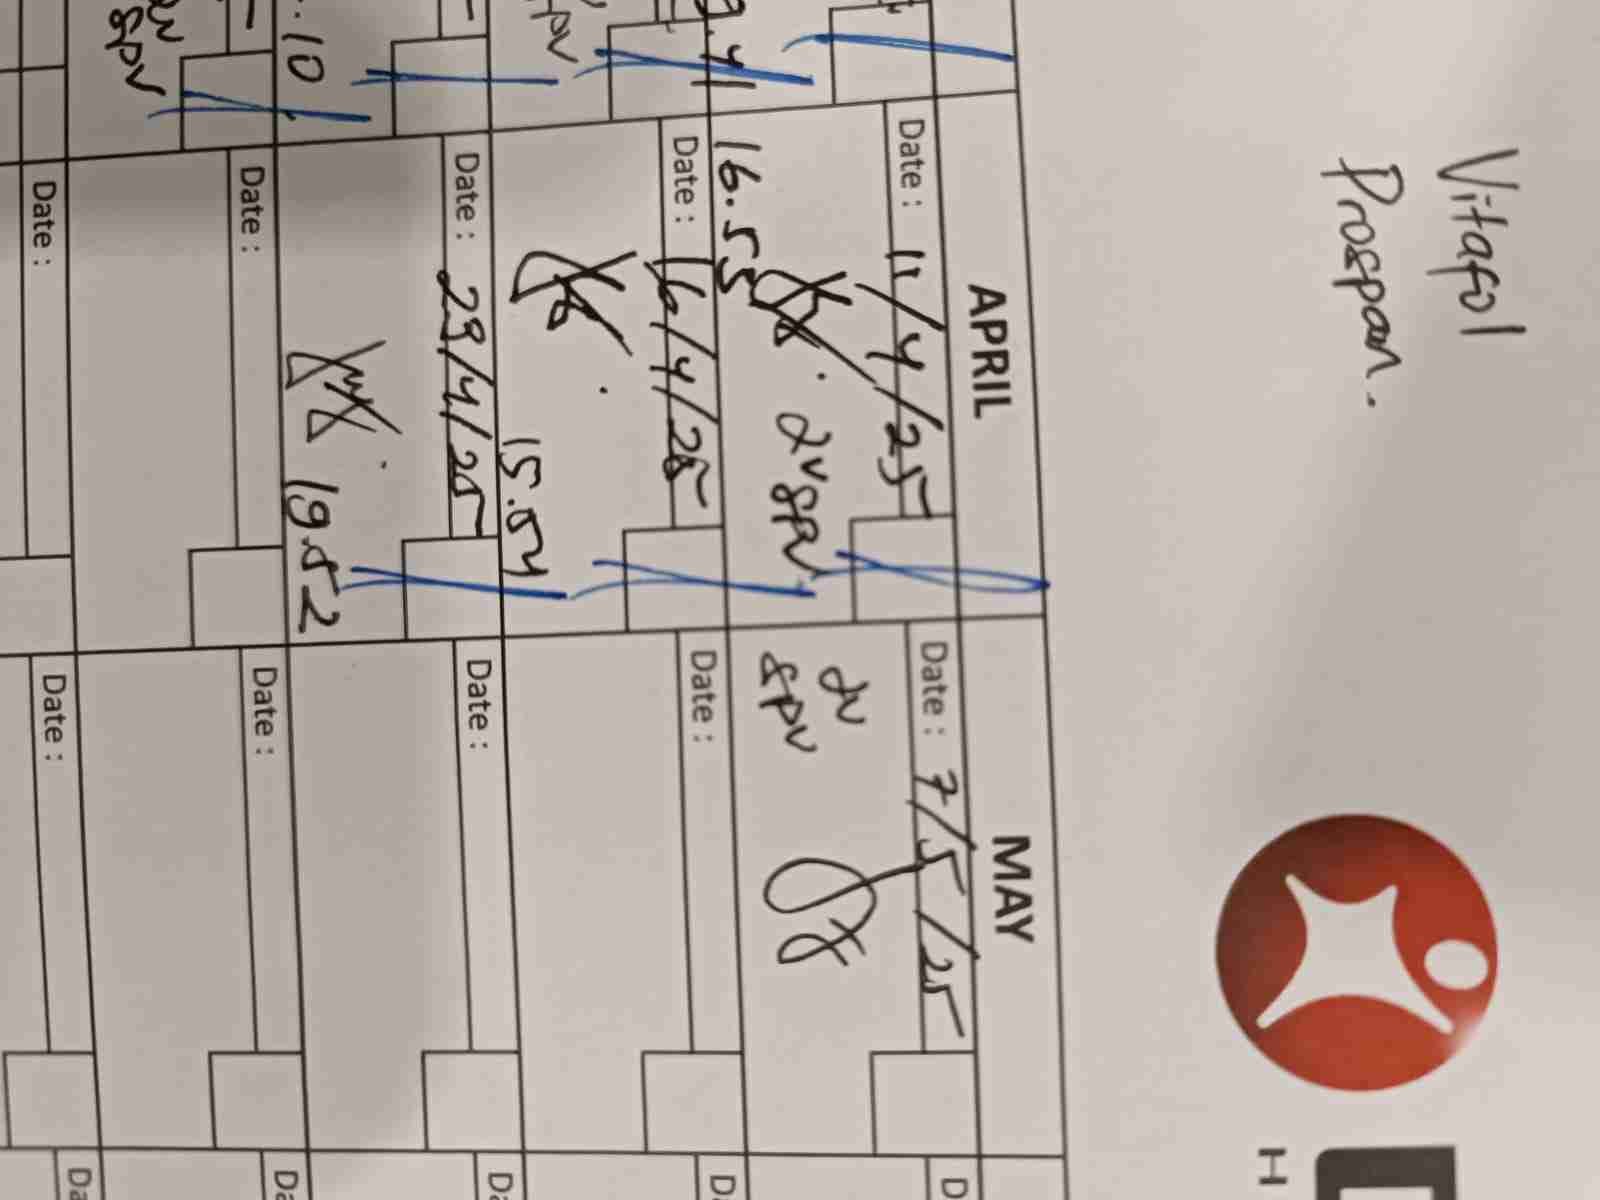 Vitafol
Prospan.
H
APRIL
MAY
Date : 11/4/25
16.55
2v spv
Date : 7/5/25
2v
spv
Date : 16/4/25
15.04
Date :
Date : 23/4/25
19.52
Date :
Date :
Date :
Date :
Date :
.41
spv
.10
spv